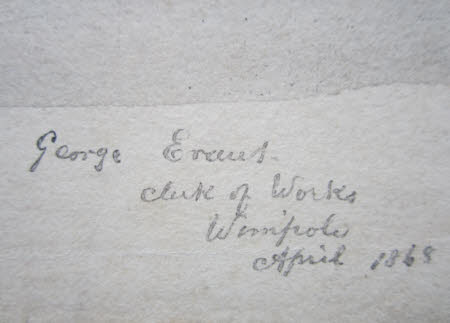 George Evans.
Clerk of Works
Wimpole
April 1868